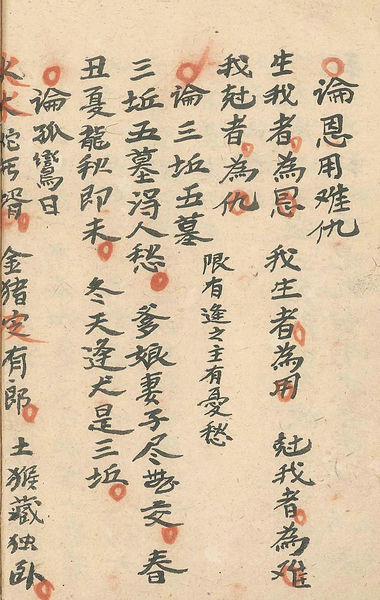 論恩用难仇
生我者為恩 我生者為用 尅我者為难
我尅者為仇
論三坵五墓 限有逢之主有憂愁
三坵五墓淂人愁 爹娘妻子尽 交 春
丑夏龍秋即未 冬天逢犬是三坵
論孤鸞日
火蛇无婿 金猪定有郎 土猴藏独卧